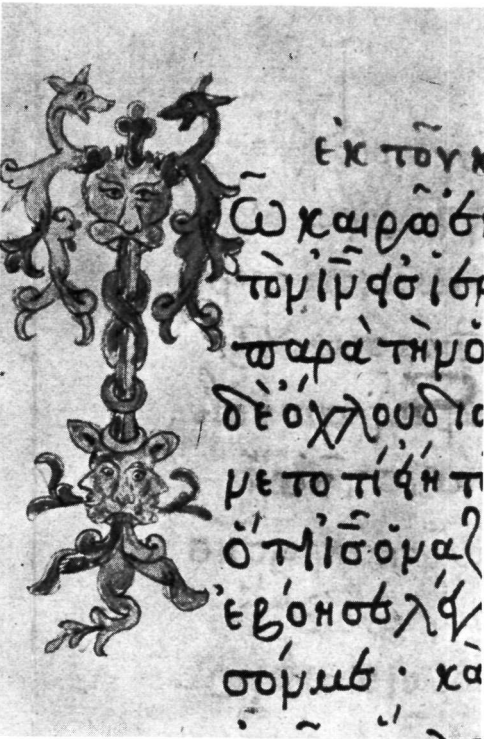 ἐκ τοῦ κ
Τῶ καιρῶ ἐκ
τὸν ἰ̅ν̅ εἰς ἰε
παρὰ τὴν ὁ
δὲ ὄχλου δια
νετο τί εἴη τ
ὅτι ἰ̅ς̅ ὁ ναζ
ἐβόησε λέγ
σόν με · κα